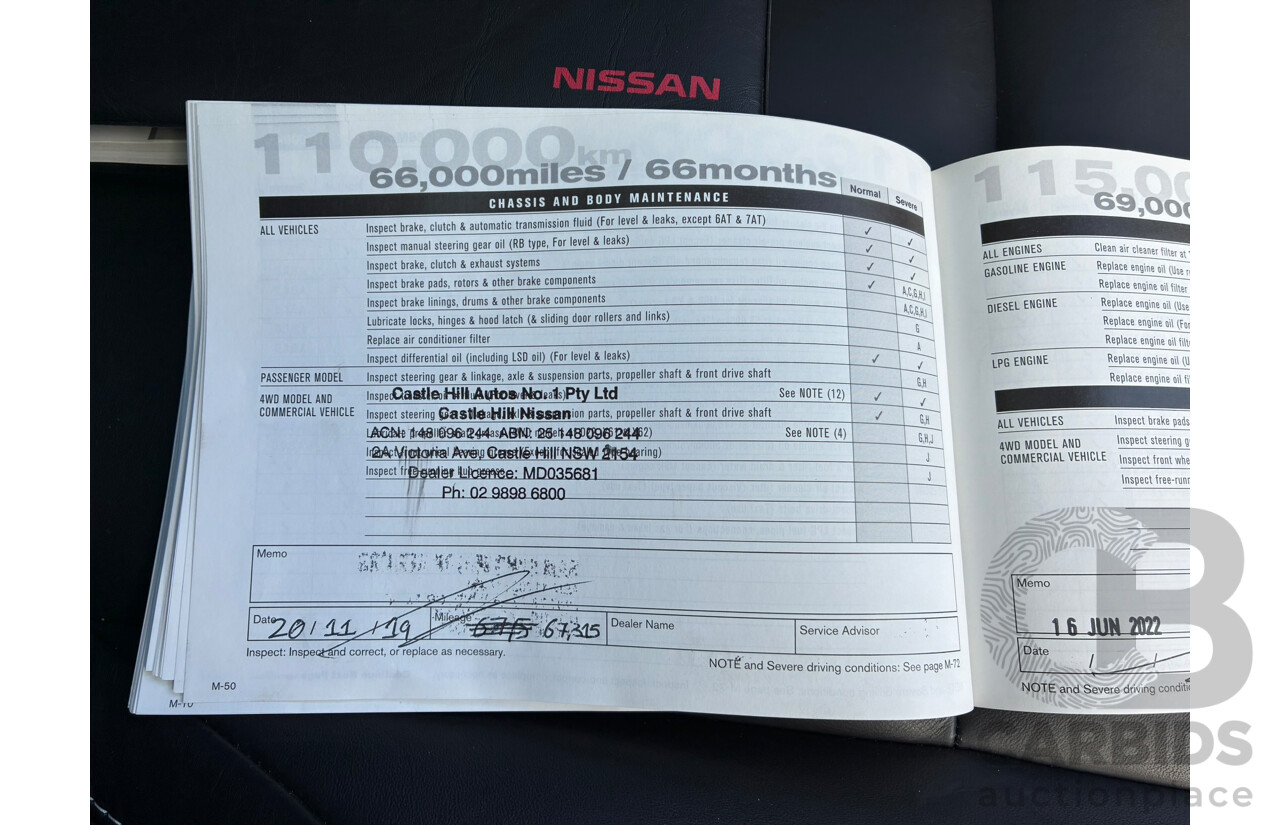 NISSAN
110,000km
66,000miles / 66months
Normal
Severe
CHASSIS AND BODY MAINTENANCE
ALL VEHICLES
Inspect brake, clutch & automatic transmission fluid (For level & leaks, except 6AT & 7AT) ✓ ✓
Inspect manual steering gear oil (RB type, For level & leaks) ✓ ✓
Inspect brake, clutch & exhaust systems ✓ ✓
Inspect brake pads, rotors & other brake components ✓ A,C,G,H,I
Inspect brake linings, drums & other brake components A,C,G,H,I
Lubricate locks, hinges & hood latch (& sliding door rollers and links) G
Replace air conditioner filter A
Inspect differential oil (including LSD oil) (For level & leaks) ✓ ✓
PASSENGER MODEL
Inspect steering gear & linkage, axle & suspension parts, propeller shaft & front drive shaft G,H
4WD MODEL AND
COMMERCIAL VEHICLE
See NOTE (12) ✓ ✓
Inspect steering parts, propeller shaft & front drive shaft ✓ G,H
See NOTE (4) G,H,J
J
J
Castle Hill Autos No. 1 Pty Ltd
Castle Hill Nissan
ACN: 148 096 244 ABN: 25 148 096 244
2A Victoria Ave, Castle Hill NSW 2154
Dealer Licence: MD035681
Ph: 02 9898 6800
Memo
Date 20/11/19
Mileage 67,315
Dealer Name
Service Advisor
Inspect: Inspect and correct, or replace as necessary.
NOTE and Severe driving conditions: See page M-72
M-50
M-10
115,00
69,000
ALL ENGINES
Clean air cleaner filter at
GASOLINE ENGINE
Replace engine oil (Use
Replace engine oil filter
DIESEL ENGINE
Replace engine oil (Use
Replace engine oil (For
Replace engine oil filt
LPG ENGINE
Replace engine oil (U
Replace engine oil fi
ALL VEHICLES
Inspect brake pads
4WD MODEL AND
COMMERCIAL VEHICLE
Inspect steering g
Inspect front whe
Inspect free-runn
Memo
16 JUN 2022
Date
NOTE and Severe driving conditi
CARBIDS
auctionplace